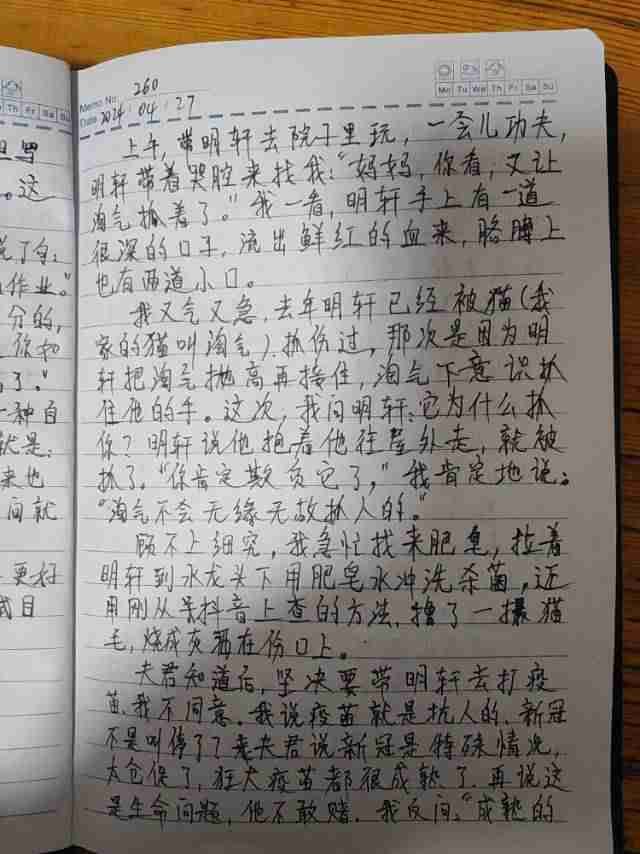 Th Fr Sa Su
且骂
。这
说了句:
作业。"
分的,
你如
了."
一种自
就是:
来也
间就
更好
或目
Memo No. 260
Date 2024 / 04 / 27
Mo Tu We Th Fr Sa Su
上午,带明轩去院子里玩,一会儿功夫,
明轩带着哭腔来找我:"妈妈,你看,又让
淘气抓着了。"我一看,明轩手上有一道
很深的口子,流出鲜红的血来,胳膊上
也有两道小口。
我又气又急,去年明轩已经被猫(我
家的猫叫淘气)抓伤过,那次是因为明
轩把淘气抛高再接住,淘气下意识抓
住他的手。这次,我问明轩:它为什么抓
你?明轩说他抱着他往屋外走,就被
抓了。"你肯定欺负它了,"我肯定地说。
"淘气不会无缘无故抓人的。"
顾不上细究,我急忙找来肥皂,拉着
明轩到水龙头下用肥皂水冲洗杀菌,还
用刚从某抖音上查的方法,撸了一撮猫
毛,烧成灰洒在伤口上。
夫君知道后,坚决要带明轩去打疫
苗,我不同意。我说疫苗就是坑人的,新冠
不是叫停了?夫君说新冠是特殊情况,
太仓促了,狂犬疫苗都很成熟了.再说这
是生命问题,他不敢赌.我反问:"成熟的